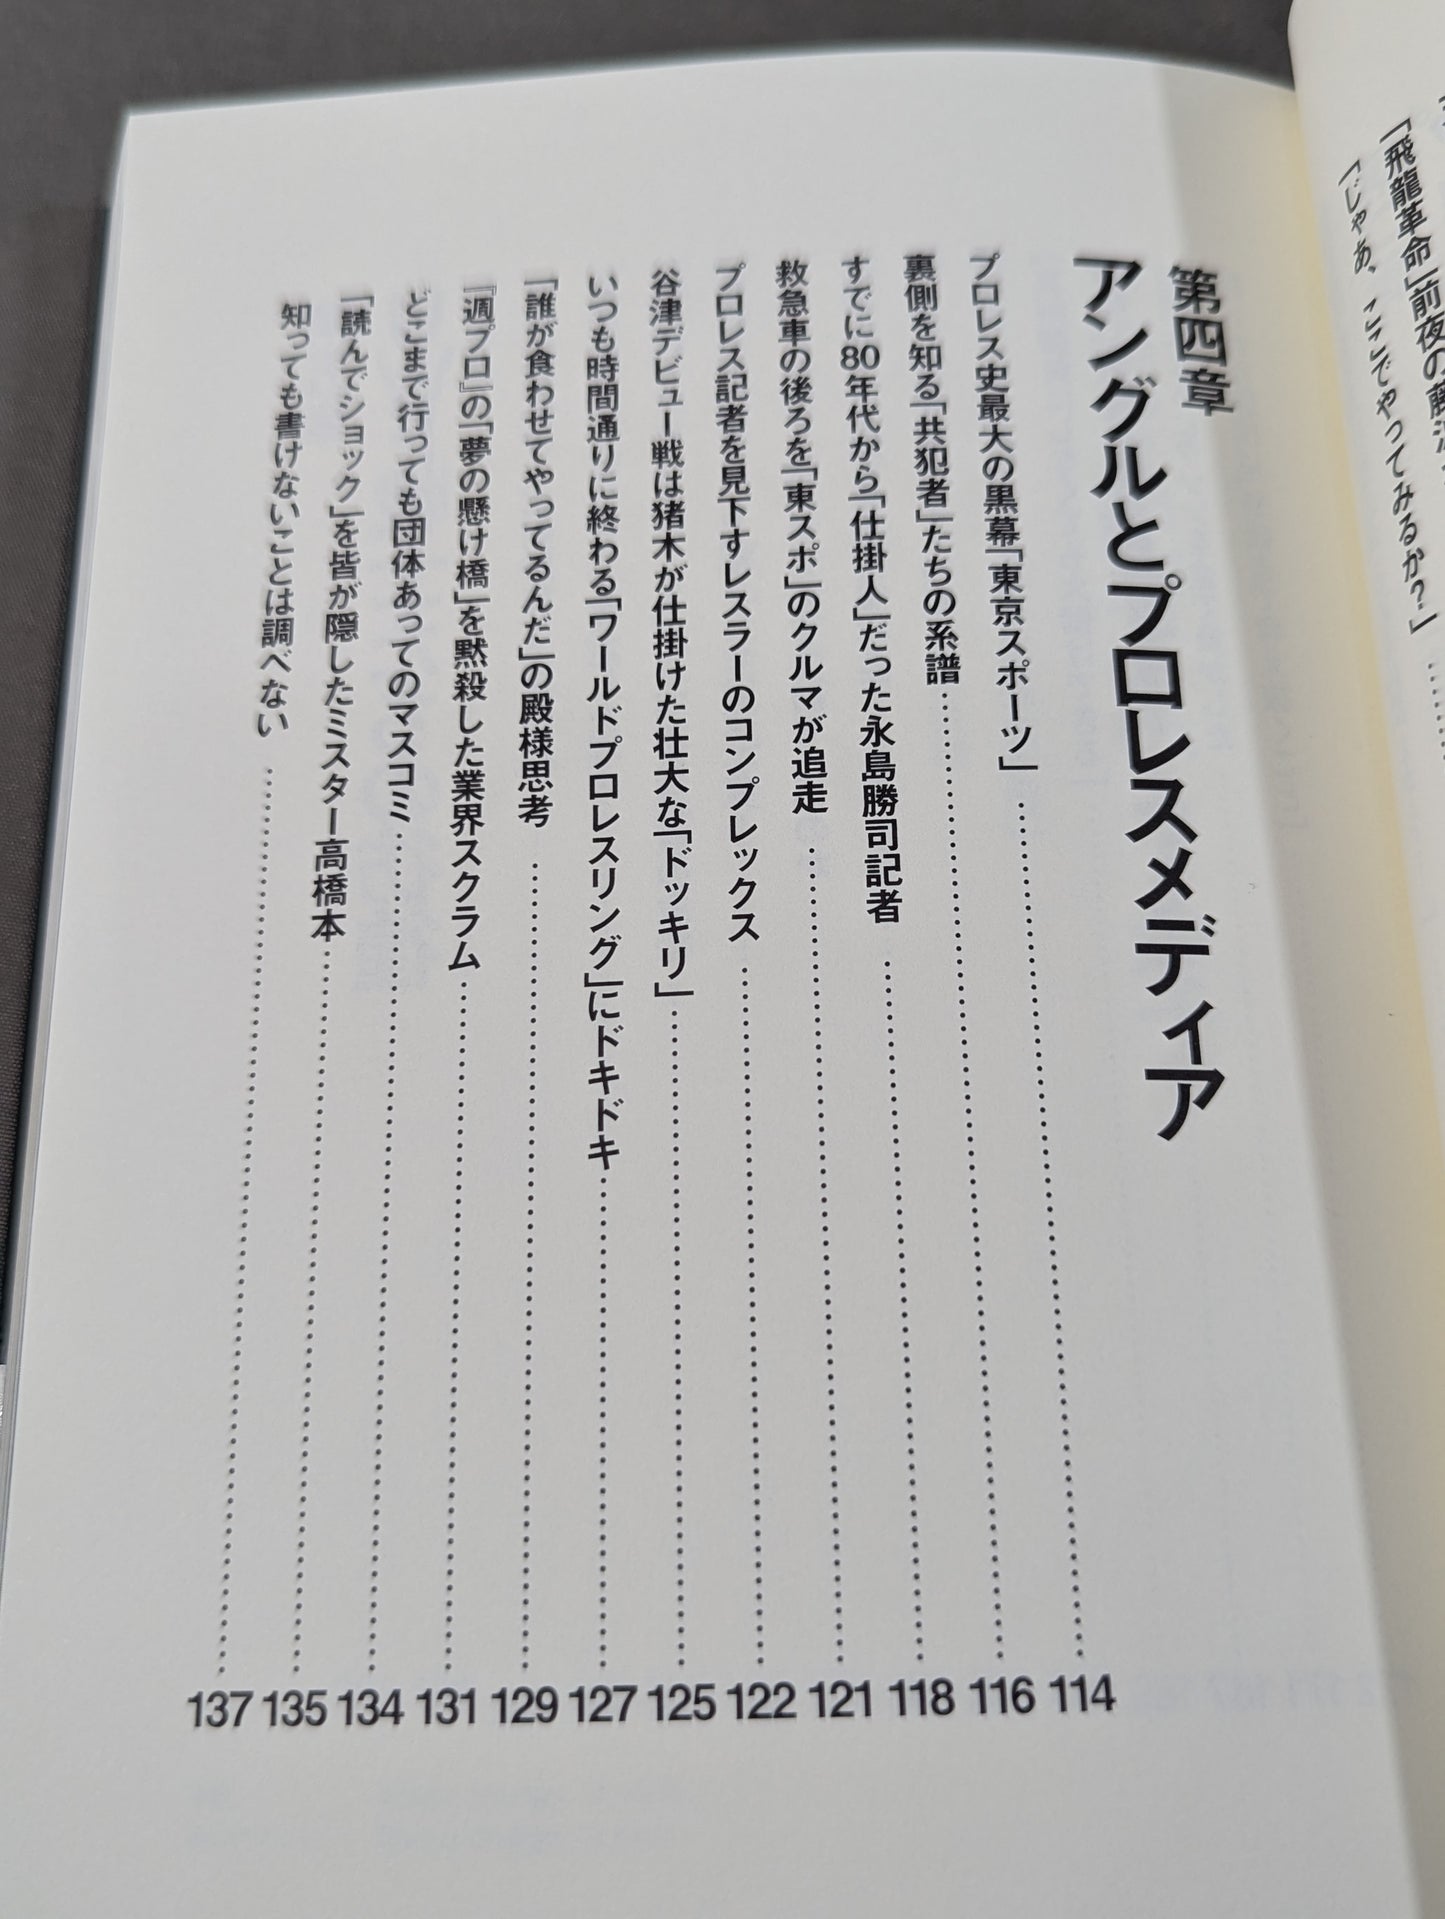 「飛龍革命」前夜の藤
「じゃあ、ここでやってみるか？」………
第四章
アングルとプロレスメディア
プロレス史最大の黒幕「東京スポーツ」………114
裏側を知る「共犯者」たちの系譜………116
すでに80年代から「仕掛人」だった永島勝司記者………118
救急車の後ろを「東スポ」のクルマが追走………121
プロレス記者を見下すレスラーのコンプレックス………122
谷津デビュー戦は猪木が仕掛けた壮大な「ドッキリ」………125
いつも時間通りに終わる「ワールドプロレスリング」にドキドキ………127
「誰が食わせてやってるんだ」の殿様思考………129
『週プロ』の「夢の懸け橋」を黙殺した業界スクラム………131
どこまで行っても団体あってのマスコミ………134
「読んでショック」を皆が隠したミスター高橋本………135
知っても書けないことは調べない………137